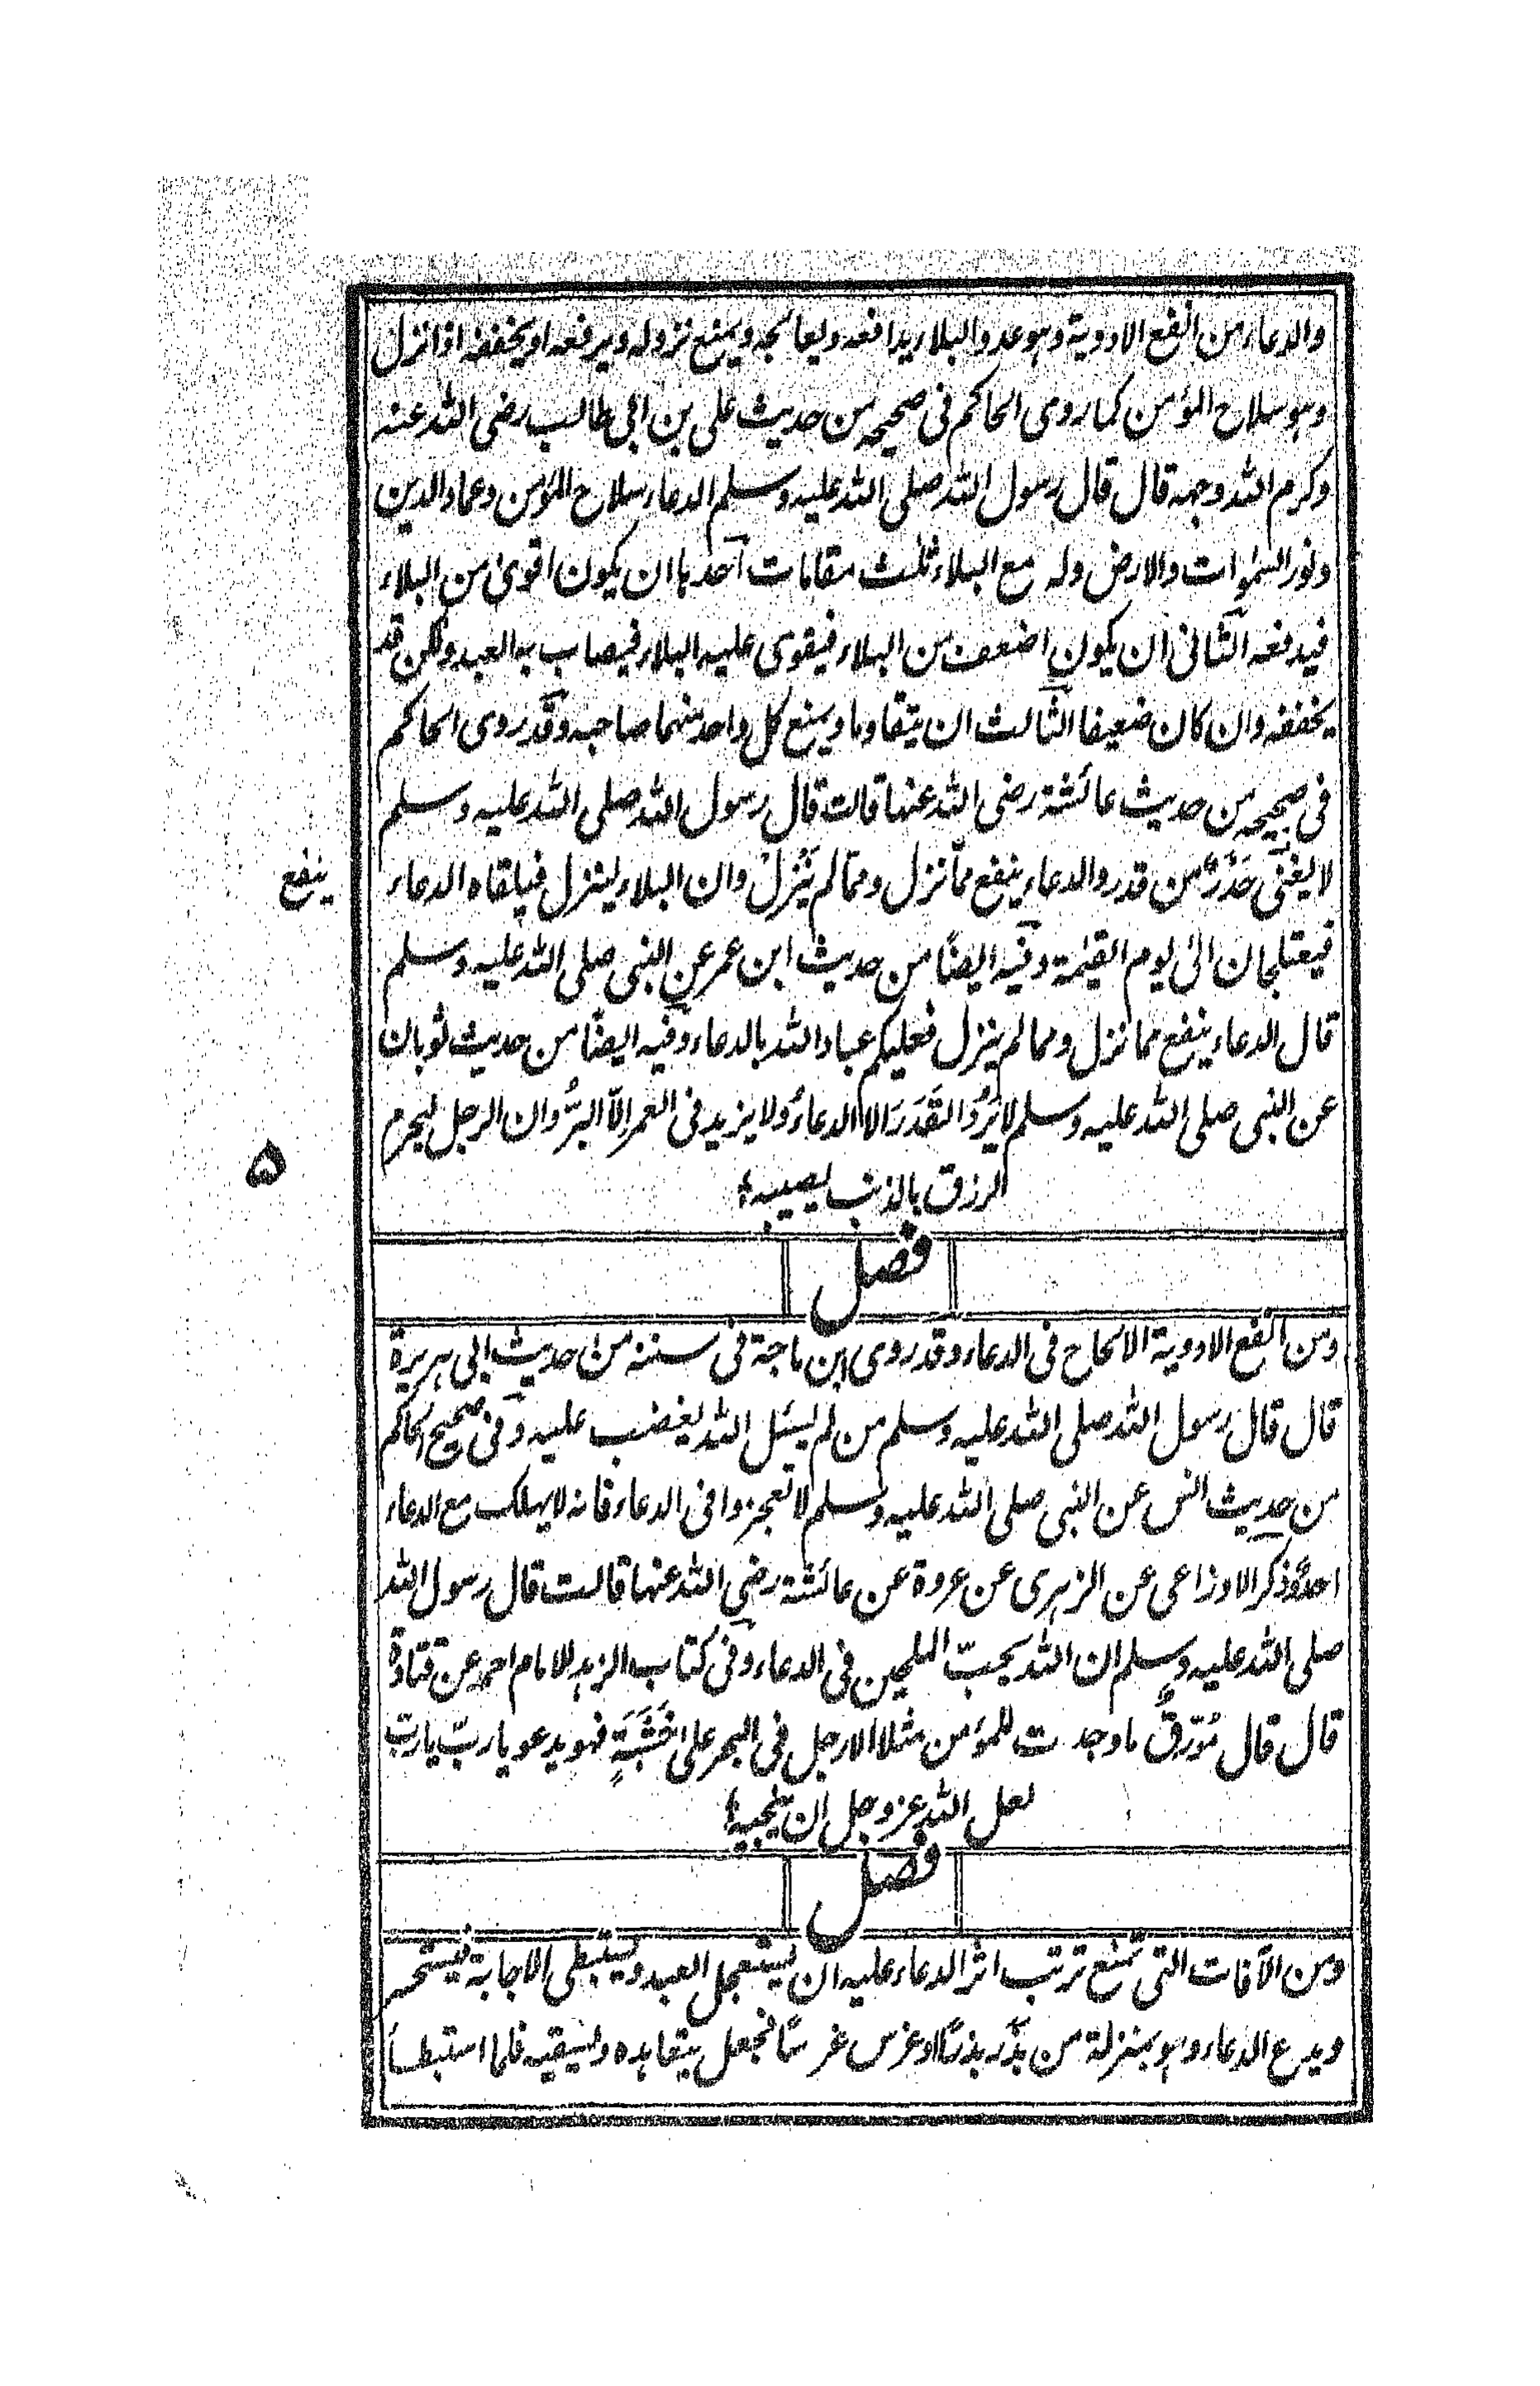 والدعاء من انفع الادوية وهو عدو البلاء يدافعه ويعالجه ويمنع نزوله ويرفعه او يخففه اذا نزل
وهو سلاح المؤمن كما روى الحاكم فى صحيحه من حديث على بن ابى طالب رضى الله عنه
وكرم الله وجهه قال قال رسول الله صلى الله عليه وسلم الدعاء سلاح المؤمن وعماد الدين
ونور السمٰوات والارض وله مع البلاء ثلٰث مقامات احدها ان يكون اقوىٰ من البلاء
فيدفعه الثانى ان يكون اضعف من البلاء فيقوى عليه البلاء فيصاب به العبد ولكن قد
يخففه وان كان ضعيفا الثالث ان يتقاوما ويمنع كل واحد منهما صاحبه وقد روى الحاكم
فى صحيحه من حديث عائشة رضى الله عنها قالت قال رسول الله صلى الله عليه وسلم
لا يغنى حَذَرٌ من قدر والدعاء ينفع ممّا نزل وممّا لم يَنْزِلْ وان البلاء لينزل فيلقاه الدعاء
ينفع
فيعتلجان الىٰ يوم القيٰمة وفيه ايضًا من حديث ابن عمر عن النبى صلى الله عليه وسلم
قال الدعاء ينفع مما نزل ومما لم ينزل فعليكم عباد الله بالدعاء وفيه ايضًا من حديث ثوبان
عن النبى صلى الله عليه وسلم لا يَرُدُّ القَدَرَ الا الدعاءُ ولا يزيد فى العمر الّا البرُّ وان الرجل ليحرم
الرزق بالذنب يصيبه؛
۵
فصل
ومن انفع الادوية الالحاح فى الدعاء وقد روى ابن ماجة فى سننه من حديث ابى هريرة
قال قال رسول الله صلى الله عليه وسلم من لم يسئل الله يغضب عليه وفى صحيح الحاكم
من حديث انس عن النبى صلى الله عليه وسلم لا تعجزوا فى الدعاء فانه لا يهلك مع الدعاء
احدٌ وذكر الاوزاعى عن الزهرى عن عروة عن عائشة رضى الله عنها قالت قال رسول الله
صلى الله عليه وسلم ان الله يحبّ الملحين فى الدعاء وفى كتاب الزهد للامام احمد عن قتادة
قال قال مُوَرّقٌ ما وجدت للمؤمن مثلا الا رجل فى البحر على خَشَبَةٍ فهو يدعو يا ربّ يا ربّ
لعل الله عز وجل ان ينجيه؛
فصل
ومن الآفات التى تمنع ترتب اثر الدعاء عليه ان يستعجل العبد ويستبطى الاجابة فيستحسر
ويدع الدعاء وهو بمنزلة من بذر بذرًا او غرس غرسًا فجعل يتعاهده ويسقيه فلما استبطأ